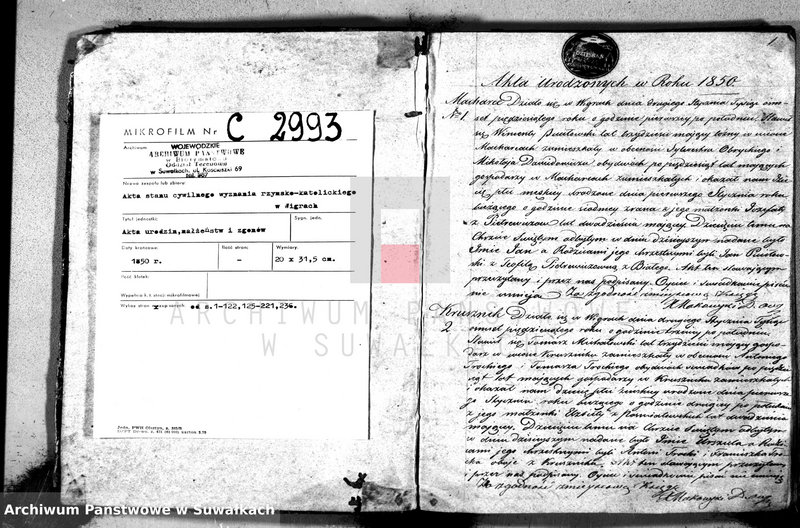 MIKROFILM Nr C 2993
Archiwum
WOJEWÓDZKIE
ARCHIWUM PAŃSTWOWE
w Białymstoku
Oddział Terenowy
w Suwałkach, ul. Kościuszki 69
Nazwa zespołu lub zbioru:
Akta stanu cywilnego wyznania rzymsko-katolickiego
w Wigrach
Tytuł jednostki: Sygn. jedn.
Akta urodzin, małżeństw i zgonów
Daty krańcowe: Ilość stron: Wymiary:
1850 r. - 20 x 31,5 cm.
Ilość klatek:
Wypełnia k. t. oraz mikrofilmowa:
od s. 1-122, 125-221, 236.
1
Akta Urodzonych w Roku 1850.
Macharce Działo się w Wigrach dnia drugiego Stycznia Tysiąc ośm-
No 1. set pięćdziesiątego roku o godzinie pierwszej po południu. Stawił
się Wincenty lat trzydzieści mający
Macharcach zamieszkały w obecności Sylwestra
i obydwóch po pięćdziesiąt lat mających
gospodarzy w Macharcach zamieszkałych i okazał nam Dzie-
cię płci męskiej urodzone dnia pierwszego Stycznia roku
bieżącego o godzinie siódmej zrana z jego małżonki Józefaty
z lat dwadzieścia mającej. Dziecięciu temu na
Chrzcie Świętym odbytym w dniu dzisiejszym nadane było
Imie Jan a Rodzicami jego chrzestnymi byli Jan
z Teofilą Akt ten stawającym
przeczytany i przez nas podpisany. Ojciec i Świadkowie pisać
nie umieją
Krusznik Działo się w Wigrach dnia drugiego Stycznia Tysiąc
2. ośmset pięćdziesiątego roku o godzinie trzeciej po południu
Stawił się Tomasz Michałowski lat trzydzieści mający gospo-
darz w Kruszniku zamieszkały w obecności Antoniego
Trockiego i Tomasza Trockiego obydwóch
lat mających gospodarzy w Kruszniku zamieszkałych
i okazał nam dziecię płci żeńskiej urodzone dnia pierwsze-
go Stycznia roku bieżącego o godzinie drugiej po południu
z jego małżonki Elżbiety z lat dwadzieścia
mającej. Dziecięciu temu na Chrzcie Świętym odbytym
w dniu dzisiejszym nadane było Imie Urszula a Rodzi-
cami jego chrzestnymi byli Antoni Trocki i Franciszka Troc-
ka oboje z Krusznika. Akt ten stawającym przeczytany
i przez nas podpisany. Ojciec i świadkowie pisać nie umieją
ARCHIWUM PAŃSTWOWE
W SUWAŁKACH
Archiwum Państwowe w Suwałkach
Archiwum Państwowe w Suwałkach